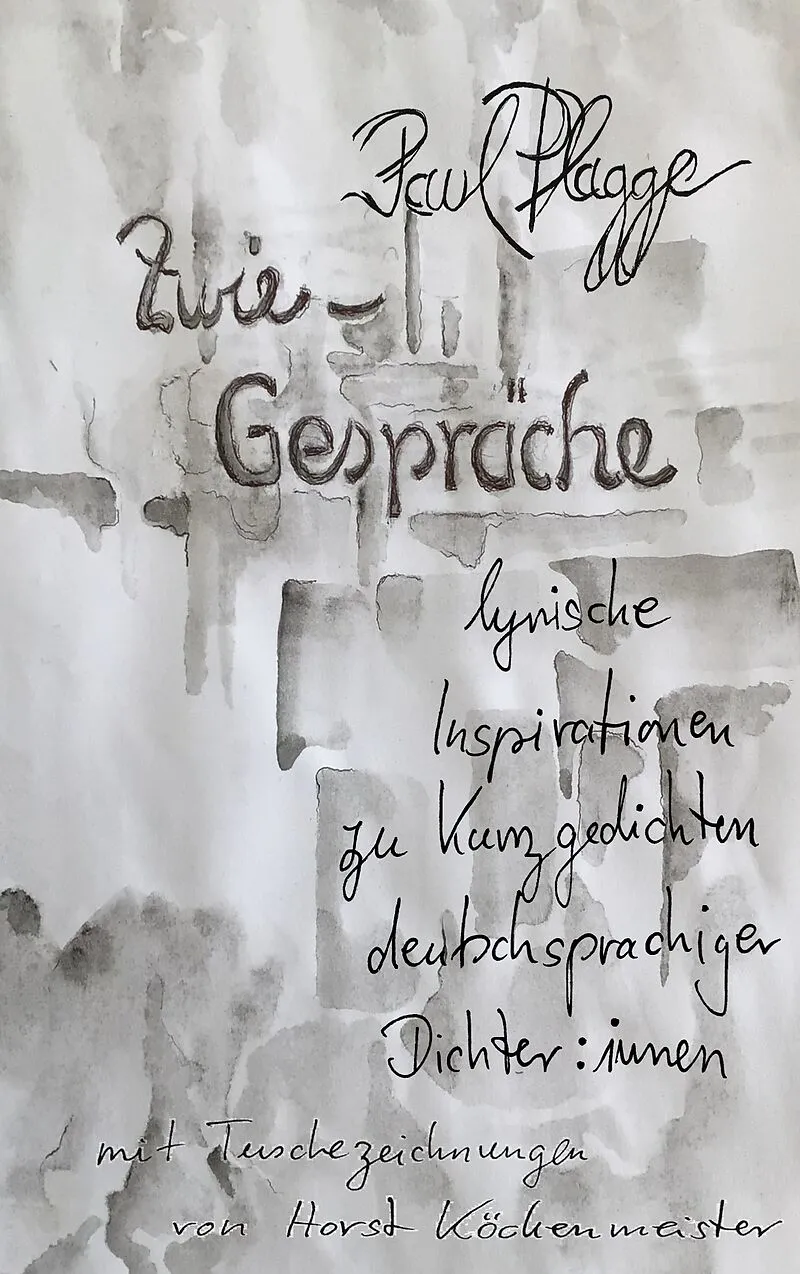 Paul Plagge
Zwie-
Gespräche
lyrische
Inspirationen
zu Kurzgedichten
deutschsprachiger
Dichter:innen
mit Tuschezeichnungen
von Horst Köckenmeister